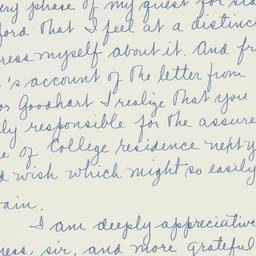 ery phase of my quest for sta
ford that I feel at a distinc
ress myself about it. And fr
's account of the letter from
or Goodhart I realize that you
ly responsible for the assure
e of College residence next y
d wish which might so easily
ain.
I am deeply appreciative
ness, sir, and more grateful